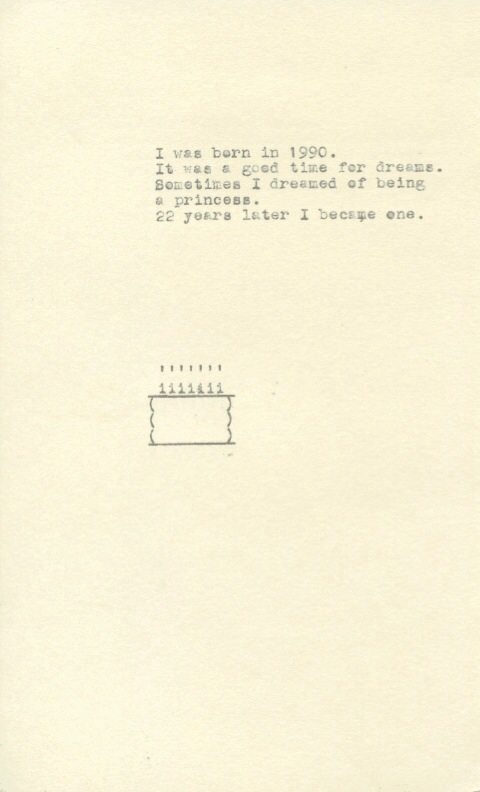 I was born in 1990.
It was a good time for dreams.
Sometimes I dreamed of being
a princess.
22 years later I became one.